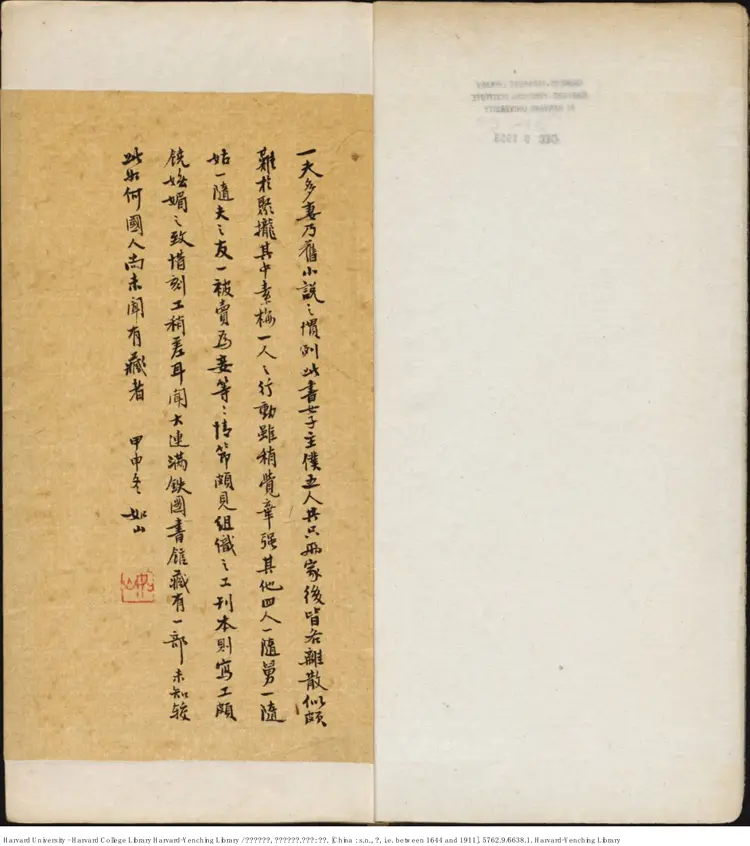 一夫多妻乃舊小說之慣例此書女子主僕五人共只兩家後皆各離散似頗
難於聚攏其中素梅一人之行動雖稍覺牽强其他四人一隨舅一隨
姑一隨夫之友一被賣爲妾等〻情節頗見組織之工刊本則寫工頗
饒嫵媚之致惜刻工稍差耳聞大連滿鉄圖書館藏有一部未知較
此如何國人尚未聞有藏者 甲申冬 如山
DEC 9 1953
Harvard University - Harvard College Library Harvard-Yenching Library / ??????, ??????.???: ??. [China : s.n., ?, i.e. between 1644 and 1911]. 5762.9.6638.1, Harvard-Yenching Library